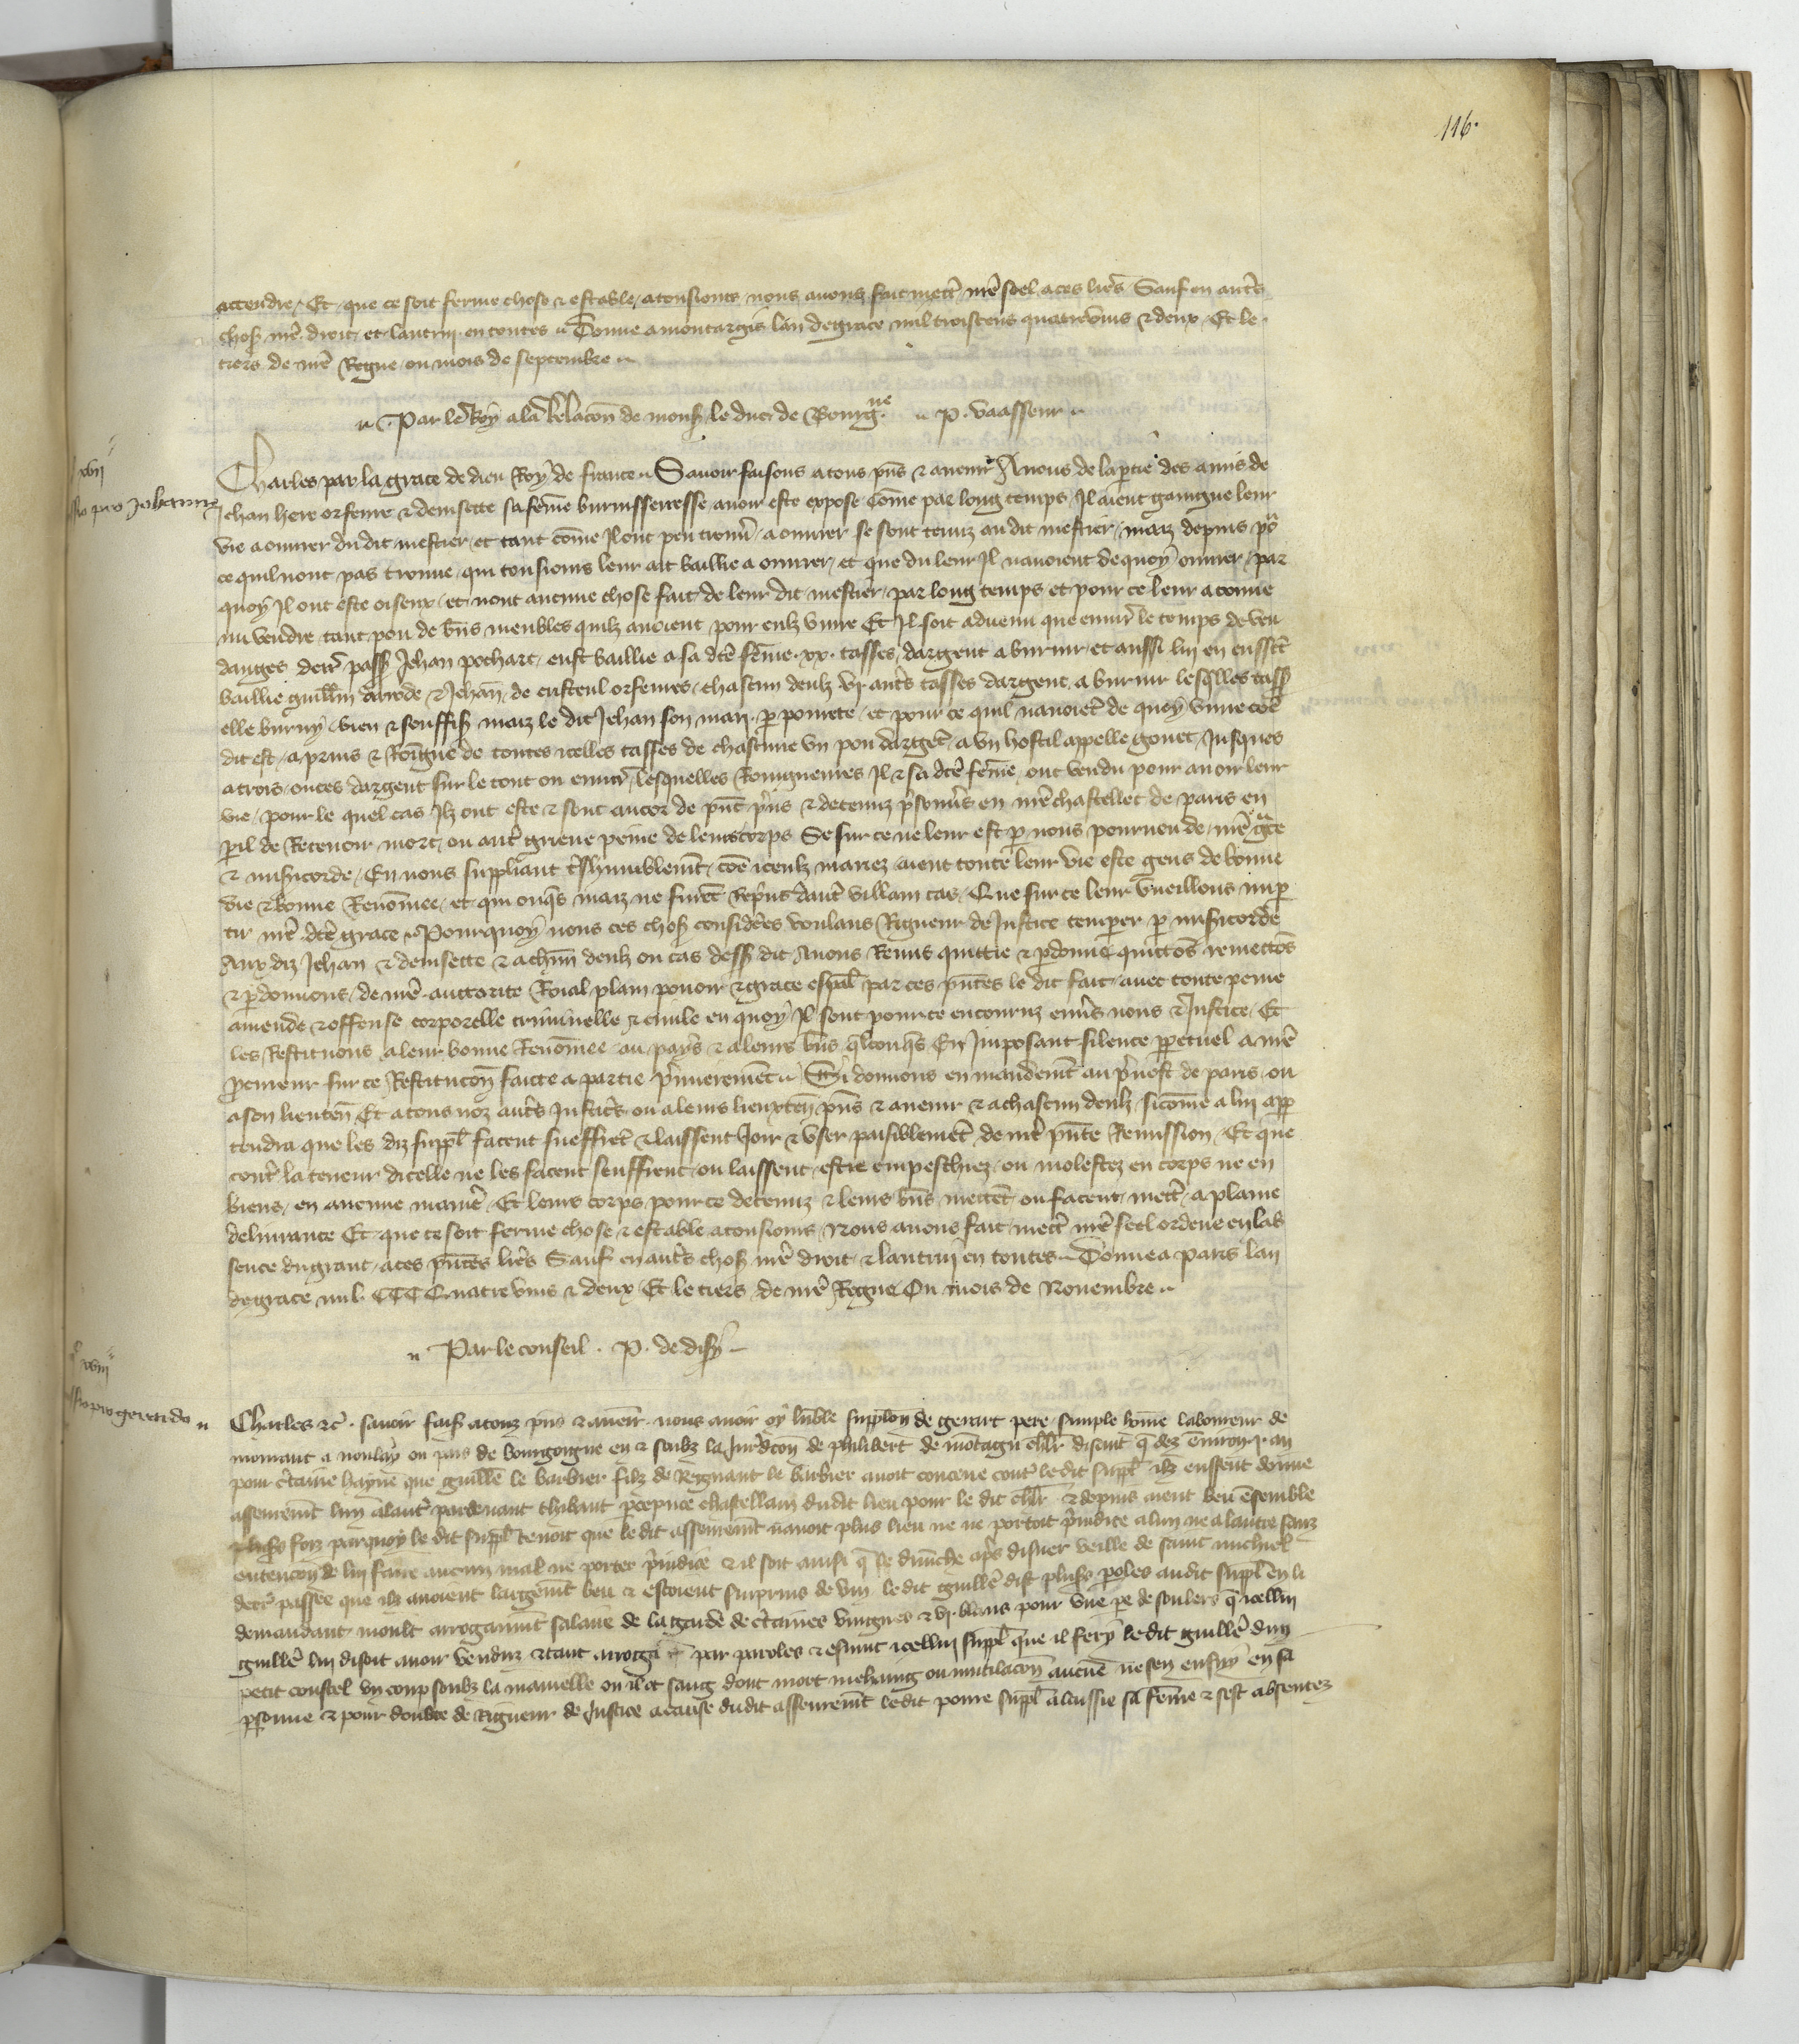 116.
attendre. Et que ce soit ferme chose & estable a tousiours nous auons fait mettre nre seel a ces lres Sauf en autres
choses nre droit et lautruy en toutes Donne a montargis lan de grace mil troiscens quatrevins & deux Et le
tiers de nre Regne ou mois de septembre
Par le Roy a la Relacon de mons le duc de Bourgne P. vaasseur
xvii
pro Johanne
Charles par la grace de dieu Roy de france Sauoir faisons a tous pns & auenir A nous de la partie des amis de
Jehan here orfeure & denisette sa feme burnisseresse auoir este expose come par long temps Il aient gaingne leur
vie a ouurer du dit mestier et tant come Il ont peu trouuer a ouurer se sont tenuz au dit mestier maiz depuis po
ce quil nont pas trouue qui tousiours leur ait baillie a ouurer et que du leur Il nauoient de quoy ouurer par
quoy Il ont este oiseux et nont aucune chose fait de leur dit mestier par long temps et pour ce leur a conue
nu vendre tant pou de bns meubles quilz auoient pour eulz viure Et Il soit aduenu que enuir le temps de ven
danges derr passe Jehan pochart eust baillie a sa dce feme xx tasses dargent a burnir et aussi lui en eussent
baillie guillin & Jehan de orfeures chascun deulz vj autres tasses dargent a burnir lesqlles tasses
elle burny bien & souffis maiz le dit Jehan son mari p pourete et pour ce quil nauoiet de quoy viure coe
dit est a prins & Roingne de toutes icelles tasses de chascune vn pou dargent a vn hostil appelle gouet Jusques
a trois onces dargent sur le tout ou enuir lesquelles Roingneures Il & sa dce feme ont vendu pour auoir leur
vie pour le quel cas Ilz ont este & sont encor de pnt prins & detenuz prisonniers en nre chastellet de paris en
peril de Receuoir mort ou autre grieue peine de leurs corps Se sur ce ne leur est p nous pourueu de nre grace
& misericorde En nous suppliant treshumblemt coe iceulz mariez aient toute leur vie este gens de bonne
vie & bonne Renomee et qui onqs maiz ne furent Repris dautre villain cas Que sur ce leur vueillons imp
tir nre dce grace Pourquoy nous ces choses consideres voulans Rigueur de Justice temper p misericorde
Aux diz Jehan & denisette & a chun deulz ou cas dess dit Auons Remis quittie & pdonne quittos remettos
& pdonnons de nre auctorite Roial plain pouoir & grace espal par ces pntes le dit fait auec toute peine
amende & offense corporelle criminelle & ciuile en quoy Il sont pour ce encouruz enuers nous & Justice Et
les Restituons a leur bonne Renomee au pays & a leurs bns qlconqs En Imposant silence ppetuel a nre
pcureur sur ce Restitucon faicte a partie primierement Si donnons en mandemt au preuost de paris ou
a son lieuten Et a tous noz autres Justiciers ou a leurs lieuxten pns & auenir & a chascun deulz sicome a lui app
tendra que les diz suppl facent sueffrent & laissent Joir & vser paisiblement de nre pnte Remission Et que
contre la teneur dicelle ne les facent seuffrent ou laissent estre empeschiez ou molestez en corps ne en
biens en aucune maniere Et leurs corps pour ce detenuz & leurs bns mettent ou facent mettre a plaine
deliurance Et que ce soit ferme chose & estable a tousiours Nous auons fait mettre nre seel ordene en lab
sence du grant a ces pntes lres Sauf en autres choses nre droit & lautruy en toutes Donne a Paris lan
de grace mil CCC Quatre vins & deux Et le tiers de nre Regne Ou mois de Nouembre
Par le conseil. P. de disy
xviii
pro gerardo
Charles &c. sauoir fais a touz pns & auenir nous auoir oy lumble supplion de gerart pere simple home laboureur de
mourant a noulay ou pais de bourgongne en & soubz la Jurdicon de philibert de motagu chlr disent q dez enuiron j an
pour certaine hayne que guille le barbier filz de Regnaut le barbier auoit conceue contre le dit suppl ilz eussent donne
asseuremt lun a lautre par deuant thibaut chastellain du dit lieu pour le dit chlr & depuis aient beu ensemble
plusrs foiz par quoy le dit suppl tenoit que le dit asseuremt nauoit plus lieu ne ne portoit preiudice a lun ne a lautre sanz
entencon de lui faire aucun mal ne porter preiudice & il soit ainsi q le dimche apres disner veille de saint michiel
derr passee que ilz auoient largemt beu & estoient surprins de vin le dit guille dist plusrs poles au dit suppl en li
demandant moult arrogaumt salaire de la garde de certaines vingnes & vj blans pour vne pe de soulers q icellui
guille lui disoit auoir venduz & tant par paroles & esmut icellui suppl que il fery le dit guille dun
petit coustel vn coup soubz la mamelle ou il ot sang dont mort mehaing ou mutilacon aucune ne sen ensuy en sa
psonne & pour doubte de Rigueur de Justice a cause du dit asseuremt le dit poure suppl a laissie sa feme & sest absentez